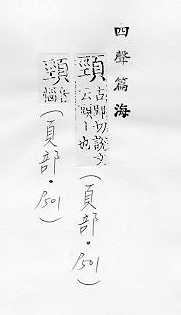 四聲篇海
頸
古郢切說文
云頸丨也
(頁部·501)
(頁部·501)